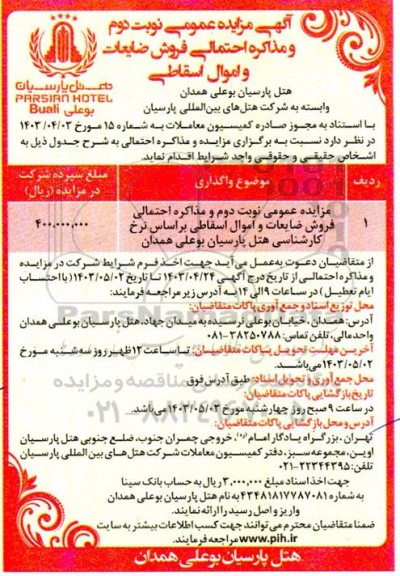 آگهی مزایده عمومی نوبت دوم
و مذاکره احتمالی فروش ضایعات
و اموال اسقاطی
هتل پارسیان
PARSIAN HOTEL
بوعلی Buali
هتل پارسیان بوعلی همدان
وابسته به شرکت هتل‌های بین‌المللی پارسیان
با استناد به مجوز صادره کمیسیون معاملات به شماره ۱۵ مورخ ۱۴۰۳/۰۴/۰۳
در نظر دارد نسبت به برگزاری مزایده و مذاکره احتمالی به شرح جدول ذیل به
اشخاص حقیقی و حقوقی واجد شرایط اقدام نماید.
ردیف موضوع واگذاری مبلغ سپرده شرکت در مزایده (ریال)
۱ مزایده عمومی نوبت دوم و مذاکره احتمالی ۴۰۰,۰۰۰,۰۰۰
فروش ضایعات و اموال اسقاطی براساس نرخ
کارشناسی هتل پارسیان بوعلی همدان
از متقاضیان دعوت به‌عمل می‌آید جهت اخذ فرم شرایط شرکت در مزایده
و مذاکره احتمالی از تاریخ درج آگهی ۱۴۰۳/۰۴/۲۴ تا تاریخ ۱۴۰۳/۰۵/۰۲ (با احتساب
ایام تعطیل) در ساعات ۹ الی ۱۴ به آدرس زیر مراجعه فرمایند:
محل توزیع اسناد و جمع آوری پاکات متقاضیان:
آدرس: همدان، خیابان بوعلی نرسیده به میدان جهاد، هتل پارسیان بوعلی همدان
واحد مالی، تلفن تماس: ۳۸۲۵۰۷۸۸-۰۸۱
آخرین مهلت تحویل پاکات متقاضیان: تا ساعت ۱۲ ظهر روز سه‌شنبه مورخ
۱۴۰۳/۰۵/۰۲ می‌باشد.
محل جمع آوری و تحویل اسناد: طبق آدرس فوق
تاریخ بازگشایی پاکات متقاضیان:
در ساعت ۹ صبح روز چهارشنبه مورخ ۱۴۰۳/۰۵/۰۳ می‌باشد.
آدرس و محل بازگشایی پاکات متقاضیان:
تهران، بزرگراه یادگار امام (ره)، خروجی چمران جنوب، ضلع جنوبی هتل پارسیان
اوین، مجموعه سبز، دفتر کمیسیون معاملات شرکت هتل‌های بین المللی پارسیان
تلفن: ۲۲۳۴۴۳۹۵-۰۲۱
جهت اخذ اسناد مبلغ ۳,۰۰۰,۰۰۰ ریال به حساب بانک سینا
به شماره ۴۳۴۸۱۸۱۷۷۸۷۰۸۱ به نام هتل پارسیان بوعلی همدان
واریز و اصل رسید را ارائه نمایند.
ضمنا متقاضیان محترم می‌توانند جهت کسب اطلاعات بیشتر به سایت
www.pih.ir مراجعه فرمایند.
هتل پارسیان بوعلی همدان